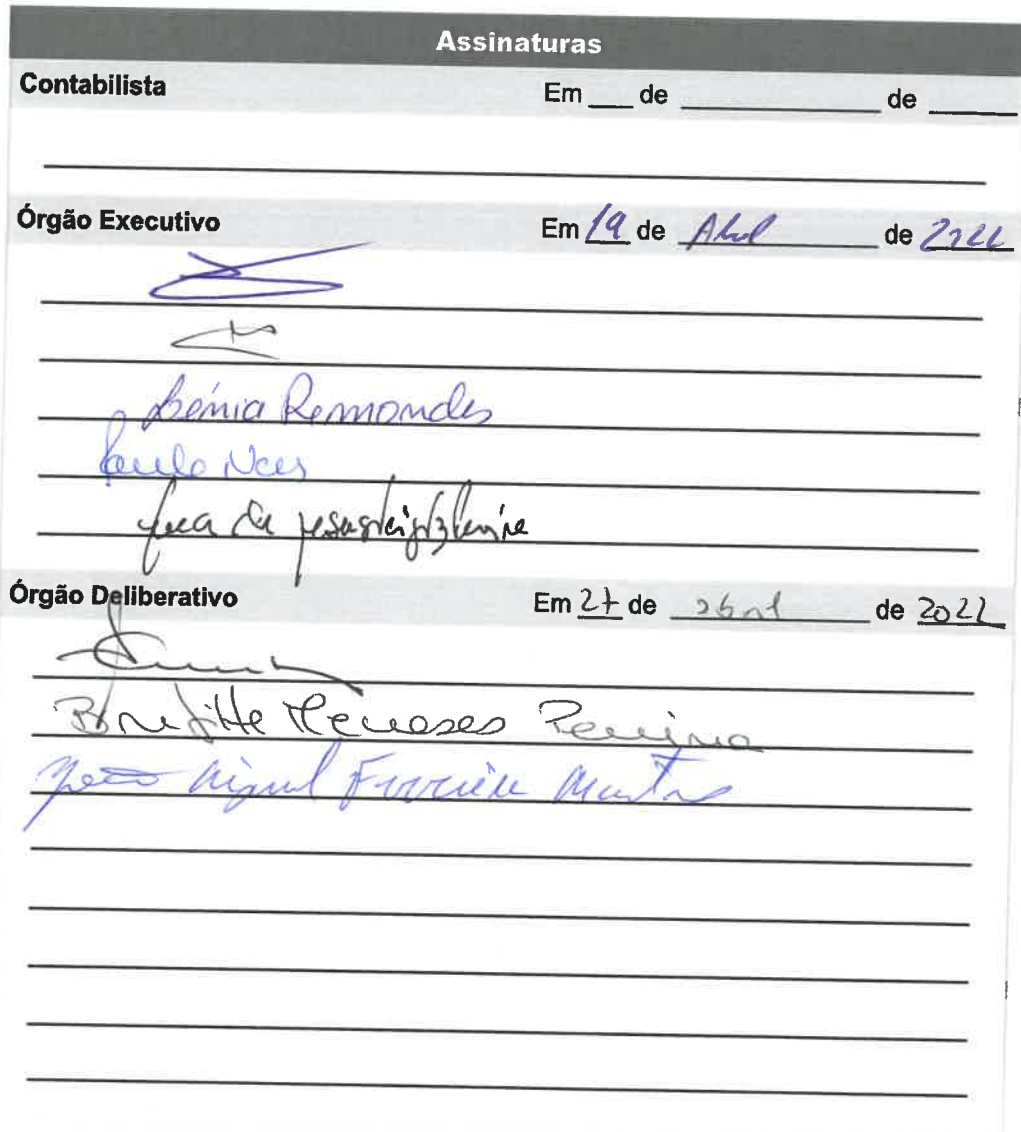 Assinaturas
Contabilista Em ___ de ______________ de _____
Órgão Executivo Em 19 de Abril de 2022
Sónia Remondes
Paulo Neves
Órgão Deliberativo Em 27 de abril de 2022
Brigitte Meneses Pereira
João Miguel Ferreira Martins